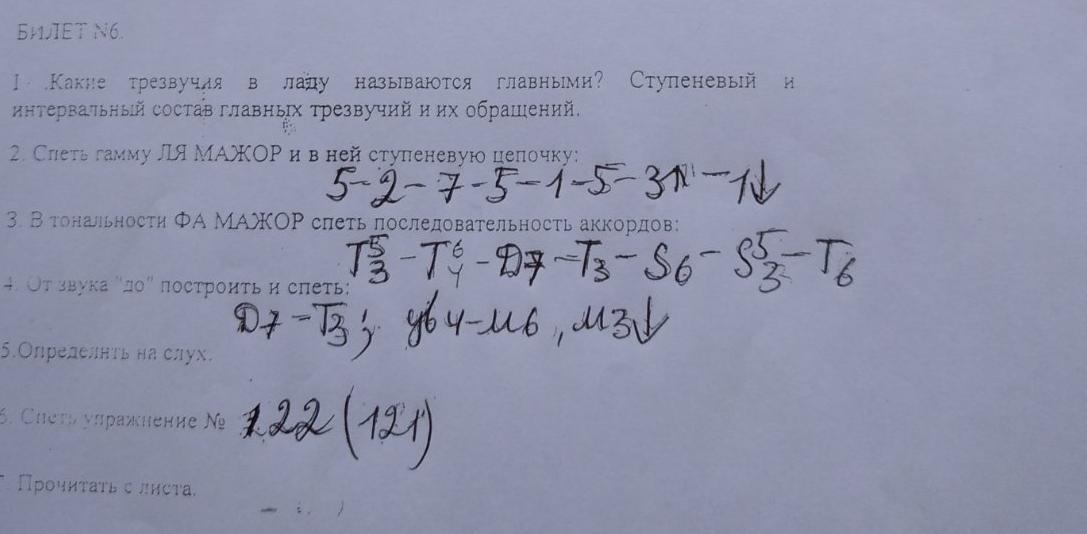 БИЛЕТ №6.
1. Какие трезвучия в ладу называются главными? Ступеневый и
интервальный состав главных трезвучий и их обращений.
2. Спеть гамму ЛЯ МАЖОР и в ней ступеневую цепочку:
5-2-7-5-1-5-3 -1↓
3. В тональности ФА МАЖОР спеть последовательность аккордов:
Т5/3 - Т6/4 - Д7 - Т3 - S6 - S5/3 - Т6
4. От звука "до" построить и спеть:
Д7 - Т5/3; ув4-м6, м3↓
5.Определить на слух.
6. Спеть упражнение № 122 (121)
7. Прочитать с листа.